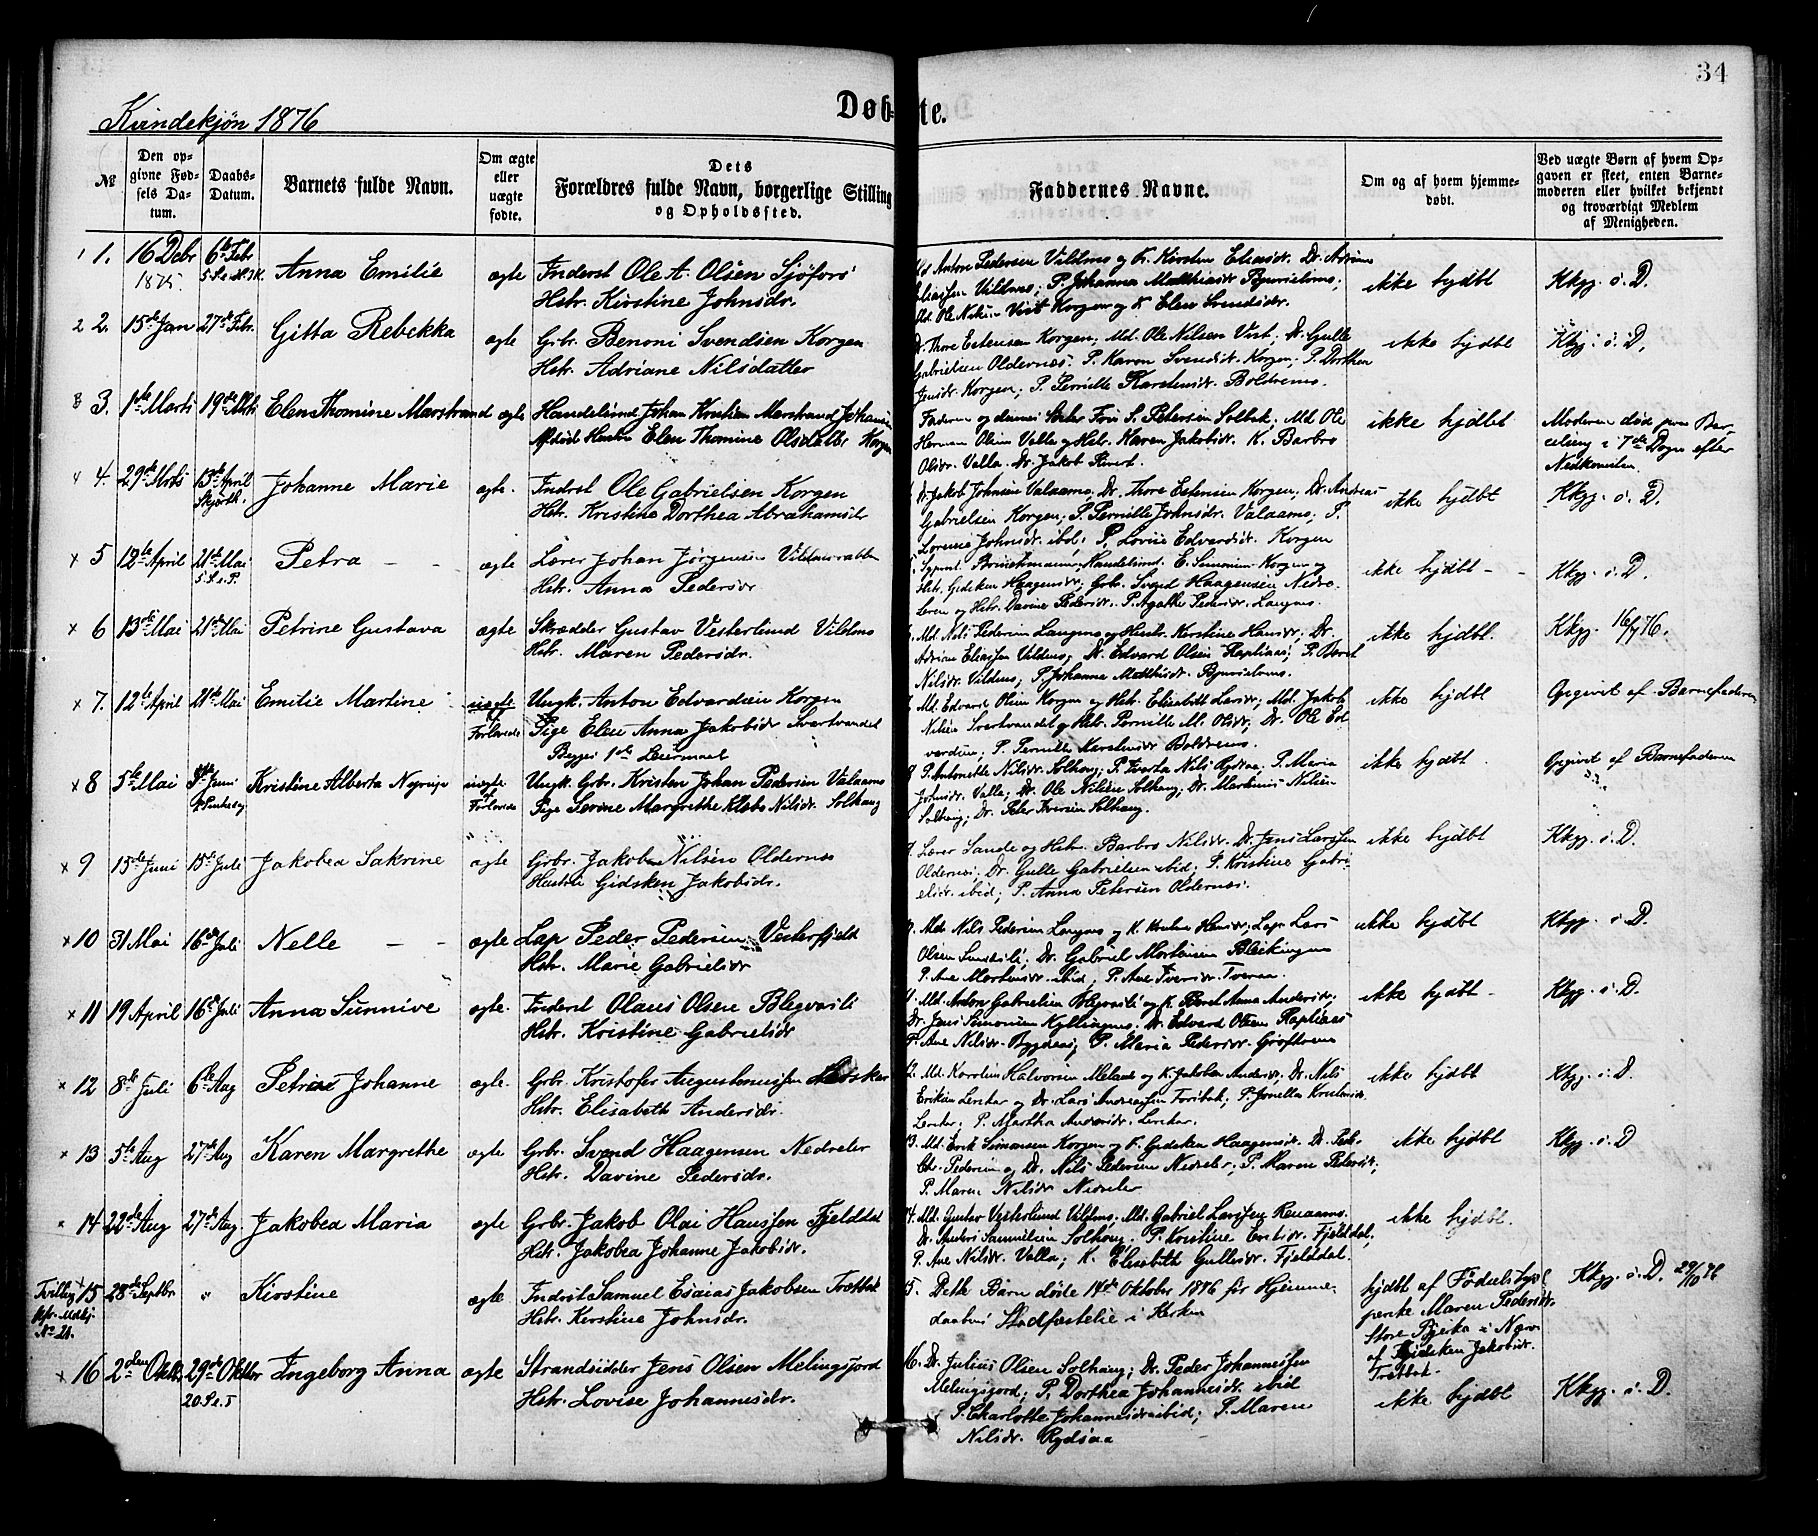 34
Kvindekjøn 1876
Døb-te.
№
Den opgivne Fødsels Datum.
Daabs-Datum.
Barnets fulde Navn.
Om ægte eller uægte fødte.
Dets Forældres fulde Navn, borgerlige Stilling og Opholdssted.
Faddernes Navne.
Om og af hvem hjemmedøbt.
Ved uægte Børn af hvem Opgaven er skeet, enten Barnemoderen eller hvilket bekjendt og troværdigt Medlem af Menigheden.
1. 16 Debr 1875. 6te Febr Anna Emilie ægte Inderst Ole A. Olsen Sjøfors
Hstr. Kirstine Johnsdr.
Anton Pedersen Vildmo og K. Kirsten Eliasdr. Dr. Adrian
Eliassen Vildmo; P. Johanna Matthiasdr.
Korgen og K. Elen Svendsdr.
ikke hjdbt Kkgg. i. D.
2. 15de Jan 27de Febr. Gitta Rebekka ægte Grbr. Benoni Svendsen Korgen
Hstr. Adriane Nilsdatter
Dr. Thore Estensen Korgen; Md. Ole Nilsen Vist; Dr. Gulle
Gabrielsen Oldernæs; P. Karen Svendsdr. Korgen; P. Dorthea
Jensdr. Korgen; P. Pernille Karstensdr. Boldremo.
ikke hjdbt Kkgg. i. D.
3. 1ste Marts 19de Marts Elen Thomine Marstrand ægte Handelsmd Johan Kristian Marstrand Johansen
Afdød Hustru Elen Thomine Olsdatter Korgen
Faderen og dennes S. Petersen Solbak, Md Ole
Herman Olsen Valla og Hstr. Maren Jakobsdr. K. Barbro
Olsdr. Valla. Dr. Jakob Sivert.
ikke hjdbt Moderen død paa Bar-
selseng i 7de Dogn efter
Nedkomsten.
4. 29de Mrts 13de April Skjærth. Johanne Marie ægte. Indrst Ole Gabrielsen Korgen
Hstr. Kristine Dorthea Abrahamsdr
Dr. Jakob Johnsen Valaamo; Dr. Thore Estensen Korgen; Dr. Andreas
Gabrielsen Korgen; P. Pernille Johnsdr. Valaamo; P.
Lorense Johnsdr. ibd; P. Lovise Edvardsdr. Korgen
ikke hjdbt Kkgg. i. D.
5 12te April 21de Mai Petra ægte Lærer Johan Jørgensen Vildmorabben
Hstr. Anna Pedersdr
Handelsmd. E. Simonsen Korgen og
Hstr. Gidsken Haagensdr; Grbr. Svend Haagensen Nedre-
leren og Hstr. Davine Pedersdr. P. Agathe Pedersdr. Langmo.
ikke hjdbt Kkgg. i. D.
6 13de Mai 21de Mai Petrine Gustava ægte Skrædder Gustav Vesterlund Vildmo
Hstr. Maren Pedersdr.
Md. Nils Pedersen Langmo og Hustr. Kirstine Hansdr; Dr.
Adrian Eliassen Vildmo; Dr. Edvard Olsen Rapliaas; P. Beret
Nilsdr. Vildmo; P. Johanna Matthisdr.
ikke hjdbt. Kkgg. 16/7 76.
7. 12te April 21de Mai Emilie Martine uægte Forlovede Ungk. Anton Edvardsen Korgen
Pige Elen Anna Jakobsdr Svartvandet
Begges 1ste Leiermaal
Md. Edvard Olsen Korgen og Hstr. Elisabeth Larsdr; Md. Jakob
Nilsen Svartvandet og Hstr. Pernille M. Olsdr; Dr. Ole Ed-
vardsen; P. Pernille Karstensdr Boldremo
ikke hjdbt Opgivet af Barnefaderen
8 5te Mai Juni Kristine Alberta uægte Forlovede Ungk. Grbr. Kristen Johan Pedersen Valaamo
Pige Serine Margrethe Klebo Nilsdr. Solhaug
P. Antonette Nilsdr. Solhaug; P. Iverta Nilsdr Rydsaa. P. Maria
Johnsdr. Valla; Dr. Ole Nilsen Solhaug; Dr. Martinus Nilsen
Solhaug; Dr. Peter Iversen Solhaug.
ikke hjdbt Opgivet af Barnefaderen
9 15de Juni 15de Juli Jakobea Sakrine ægte Grbr. Jakob Nilsen Oldernæs
Hustru Gidsken Jakobsdr.
Lærer Sande og Hstr. Barbro Nilsdr. Dr. Jens Larssen
Oldernæs; Dr. Gulle Gabrielsen ibid; P. Kristine Gabri-
elsdr. ibid; P. Anna Petersen Oldernæs.
ikke hjdbt Kkgg. i. D.
10 31 Mai 16de Juli Nelle ægte Lap Peder Pedersen Vesterfjeld
Hstr. Marie Gabrielsdr
Md. Nils Pedersen Langmo og K. Hansdr; Lap Lars
Olsen; Dr. Gabriel Mortensen Bleikingmo
P. Ane Mortensdr. ibid; P. Ane Iversdr. Tveraa.
ikke hjdbt Kkgg. i. D.
11 19 April 16de Juli Anna Sunnive ægte. Inderst Olaus Olsen Blygvasli
Hstr. Kristine Gabrielsdr
Md. Anton Gabrielsen og K. Beret Anna Andersdr;
Dr. Jens Simonsen Kyllingmo; Dr. Edvard Olsen Rapliaas
P. Ane Nilsdr. Bygdaas; P. Maria Pedersdr.
ikke hjdbt Kkgg. i. D.
12 8de Juli 6te Aug Johanne ægte. Grbr. Kristofer Augustinussen
Hstr. Elisabeth Andersdr.
Md. Karolius Halvorsen og K. Jakobea Andersdr; Dr. Nils
Eriksen og Dr. Lars Andreassen Forsbak; P. Jonetta
P. Martha Andersdr.
ikke hjdbt Kkgg. i. D.
13 5te Aug 27de Aug Karen Margrethe ægte Grbr. Svend Haagensen Nedreler
Hstr. Davine Pedersdr.
Md. Erik Simonsen Korgen og K. Gidsken Haagensdr. Dr. Pedr.
Chr. Pedersen og Dr. Nils Pedersen Nedreler; P. Maren Pedersdr;
P. Maren Nilsdr Nedreler
ikke hjdbt Kkgg. i. D
14 22de Aug 27de Aug. Jakobea Maria ægte Grbr. Jakob Olai Hanssen Fjelddal
Hstr. Jakobea Johanne Jakobsdr.
Md. Gustav Vesterlund Vildmo; Md. Gabriel Larssen Renaamo.
Dr. Anders Samuelsen Solhaug. P. Kristine Fjelddal,
P. Ane Nilsdr. Valla; K. Elisabeth Gullesdr. Fjelddal.
ikke hjdbt.
Tvilling
Kfr. Mdkj.
No 21.
15 28de Septbr. " Kirstine ægte Indrst Samuel Esaias Jakobsen Trætbak
Hstr. Kerstine Johnsdr.
15. Dette Barn døde 14de Oktober 1876 før Hjemme-
daabens Stadfæstelse i Kirken
hjdbt af Fødselshjæl-
perske Maren Pedersdr.
Store Bjerka i Nærv
af Gjidsken Jakobsdr.
Trætbak.
Kkgg. i. D. 29/10 76
16 2den Oktbr 29de Oktbr 20. S. e. T Ingeborg Anna ægte Strandsidder Jens Olsen Melingsjord
Hstr. Lovise Johannesdr.
16. Dr. Julius Olsen Solhaug; Dr. Peder Johannessen
Melingsjord; P. Dorthea Johannesdr. ibid
P. Charlotte Johannesdr ibid; P. Maren
Nilsdr. Rydsaa
ikke hjdbt Kkgg. i. D.